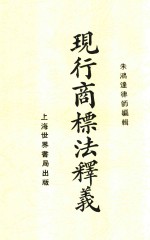 朱鴻達律師編輯
現行商標法釋義
上海世界書局出版